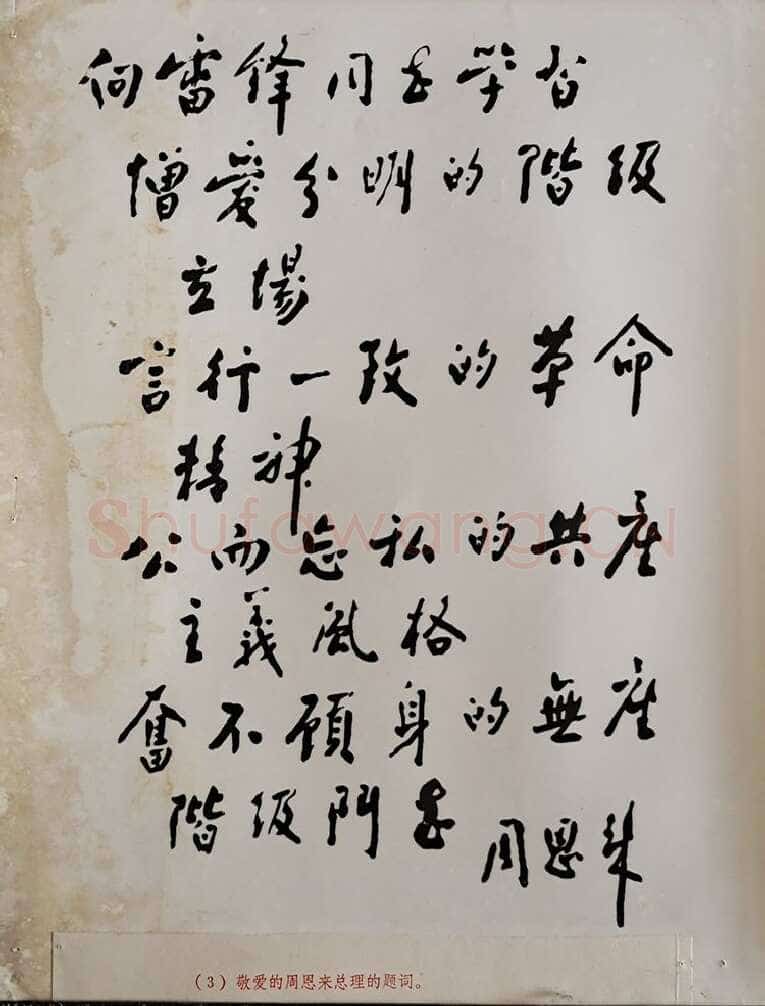 向雷锋同志学习
憎爱分明的階级
立場
言行一致的革命
精神
公而忘私的共產
主義風格
奮不顧身的無產
階级鬥志
周恩来
Shufawang.CN
(3)敬爱的周恩来总理的题词。